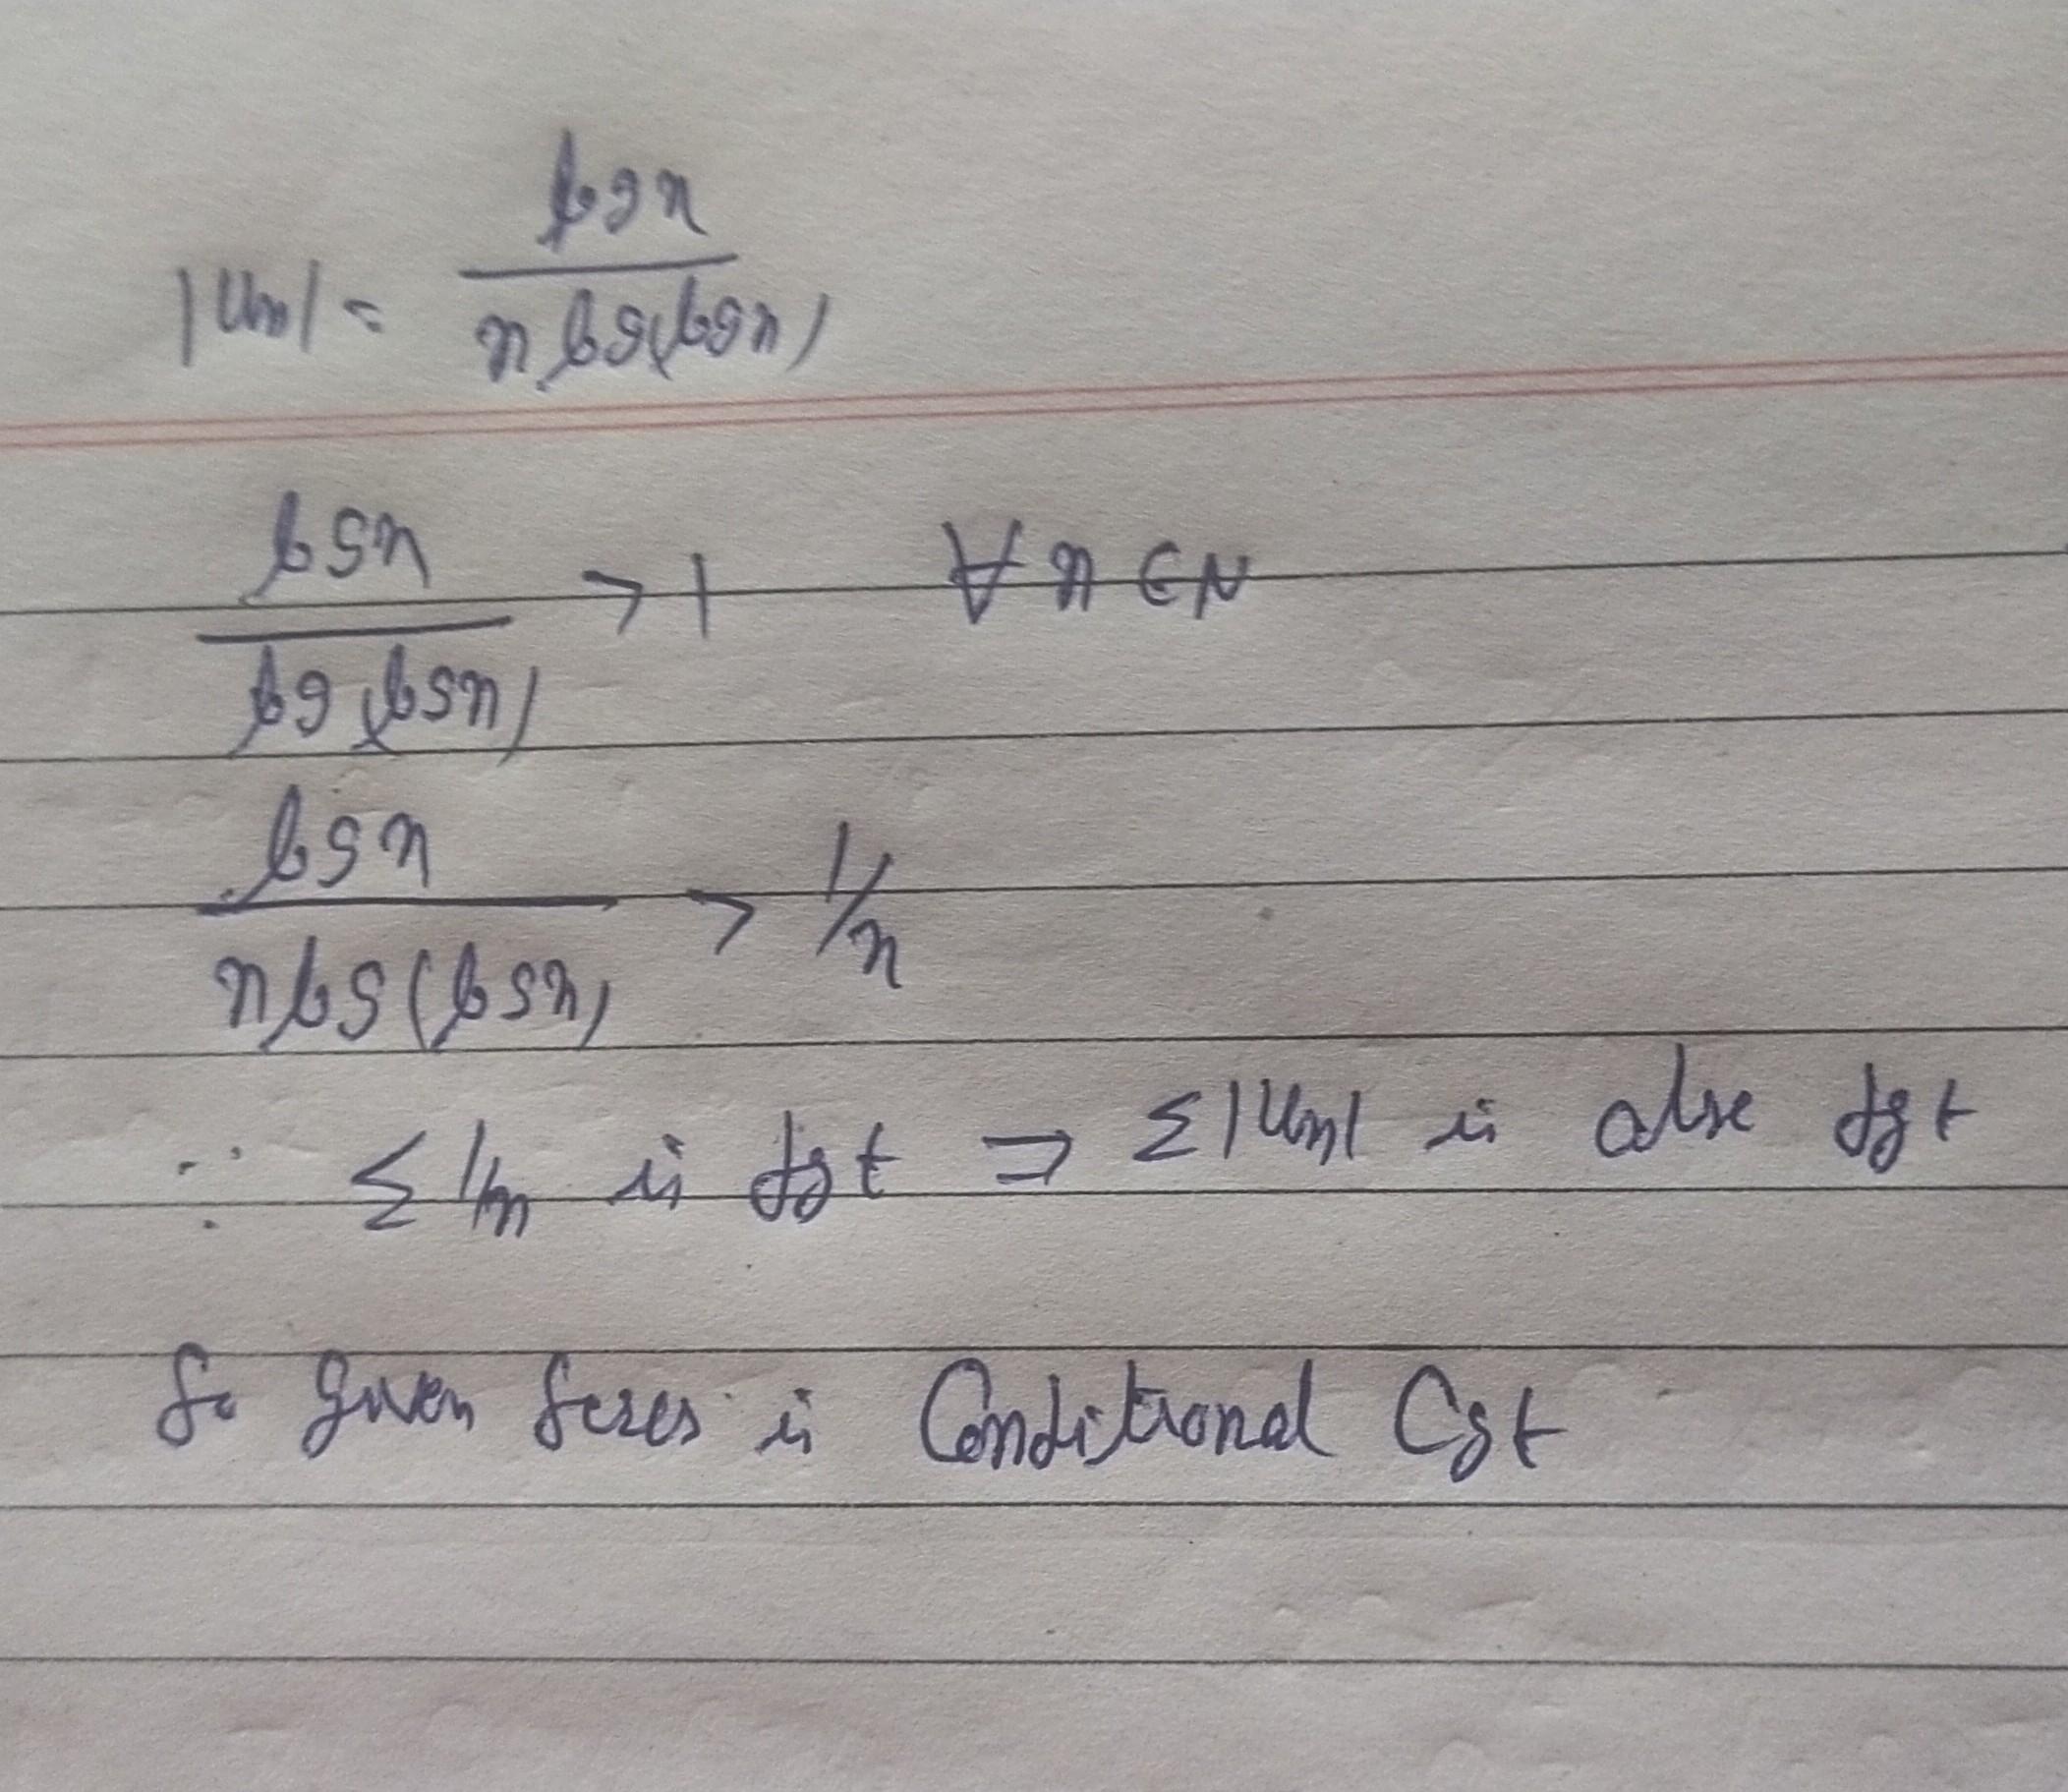 |Un| = log n / n log(log n)
log n / log(log n) > 1 ∀ n ∈ N
log n / n log(log n) > 1/n
∵ Σ 1/n is dgt ⇒ Σ|Un| is also dgt
So given series is Conditional Cgt